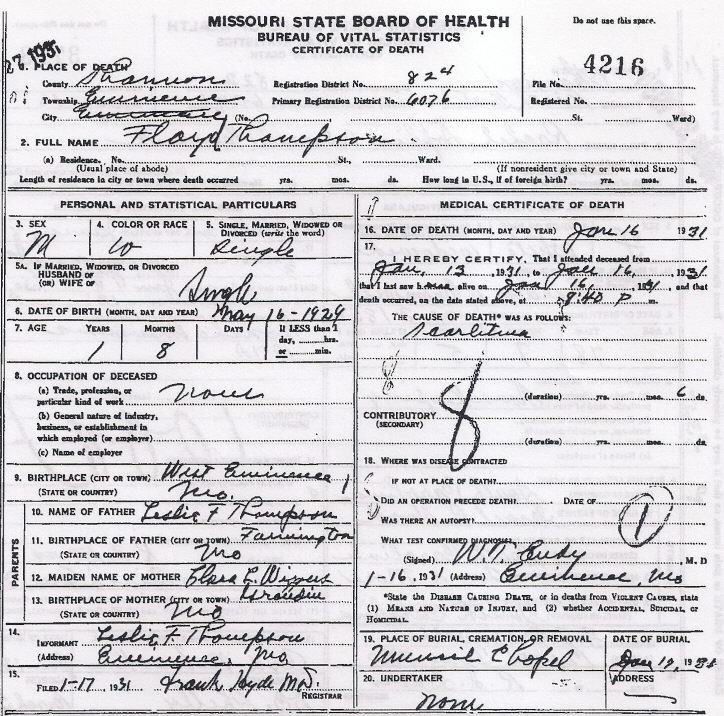 MISSOURI STATE BOARD OF HEALTH
BUREAU OF VITAL STATISTICS
CERTIFICATE OF DEATH
Do not use this space.
4216
1931
1. PLACE OF DEATH
County Shannon Registration District No. 824 File No.
Township Eminence Primary Registration District No. 6076 Registered No.
City Eminence (No. St. Ward)
2. FULL NAME Floyd Thompson
(a) Residence. No. St., Ward.
(Usual place of abode) (If nonresident give city or town and State)
Length of residence in city or town where death occurred yrs. mos. ds. How long in U.S., if of foreign birth? yrs. mos. ds.
PERSONAL AND STATISTICAL PARTICULARS
3. SEX 4. COLOR OR RACE 5. SINGLE, MARRIED, WIDOWED OR DIVORCED (write the word)
M W Single
5A. IF MARRIED, WIDOWED, OR DIVORCED
HUSBAND OF
(OR) WIFE OF Single
6. DATE OF BIRTH (MONTH, DAY AND YEAR) May 16-1929
7. AGE YEARS MONTHS DAYS If LESS than 1 day, hrs. or min.
1 8
8. OCCUPATION OF DECEASED
(a) Trade, profession, or particular kind of work None
(b) General nature of industry, business, or establishment in which employed (or employer)
(c) Name of employer
9. BIRTHPLACE (CITY OR TOWN) West Eminence
(STATE OR COUNTRY) Mo.
PARENTS
10. NAME OF FATHER Leslie F Thompson
11. BIRTHPLACE OF FATHER (CITY OR TOWN) Farmington
(STATE OR COUNTRY) Mo
12. MAIDEN NAME OF MOTHER Clara E.
13. BIRTHPLACE OF MOTHER (CITY OR TOWN)
(STATE OR COUNTRY) Mo
14. INFORMANT Leslie F. Thompson
(Address) Eminence, Mo
15. FILED 1-17, 1931 Frank Hyde MD.
REGISTRAR
MEDICAL CERTIFICATE OF DEATH
16. DATE OF DEATH (MONTH, DAY AND YEAR) Jan 16 1931
17. I HEREBY CERTIFY, That I attended deceased from
Jan. 13, 1931, to Jan 16, 1931
that I last saw h alive on Jan 16, 1931, and that
death occurred, on the date stated above, at 8:40 P m.
THE CAUSE OF DEATH* WAS AS FOLLOWS:
Scarlitina
8
(duration) yrs. mos. 6 ds.
CONTRIBUTORY
(SECONDARY)
(duration) yrs. mos. ds.
18. WHERE WAS DISEASE CONTRACTED
IF NOT AT PLACE OF DEATH?
DID AN OPERATION PRECEDE DEATH? DATE OF
WAS THERE AN AUTOPSY?
1
WHAT TEST CONFIRMED DIAGNOSIS?
(Signed) W.T. Eudy, M.D
1-16, 1931 (Address) Eminence, Mo
*State the DISEASE CAUSING DEATH, or in deaths from VIOLENT CAUSES, state
(1) MEANS AND NATURE OF INJURY, and (2) whether ACCIDENTAL, SUICIDAL, or
HOMICIDAL.
19. PLACE OF BURIAL, CREMATION, OR REMOVAL DATE OF BURIAL
Chapel Jan 17, 1931
20. UNDERTAKER ADDRESS
None